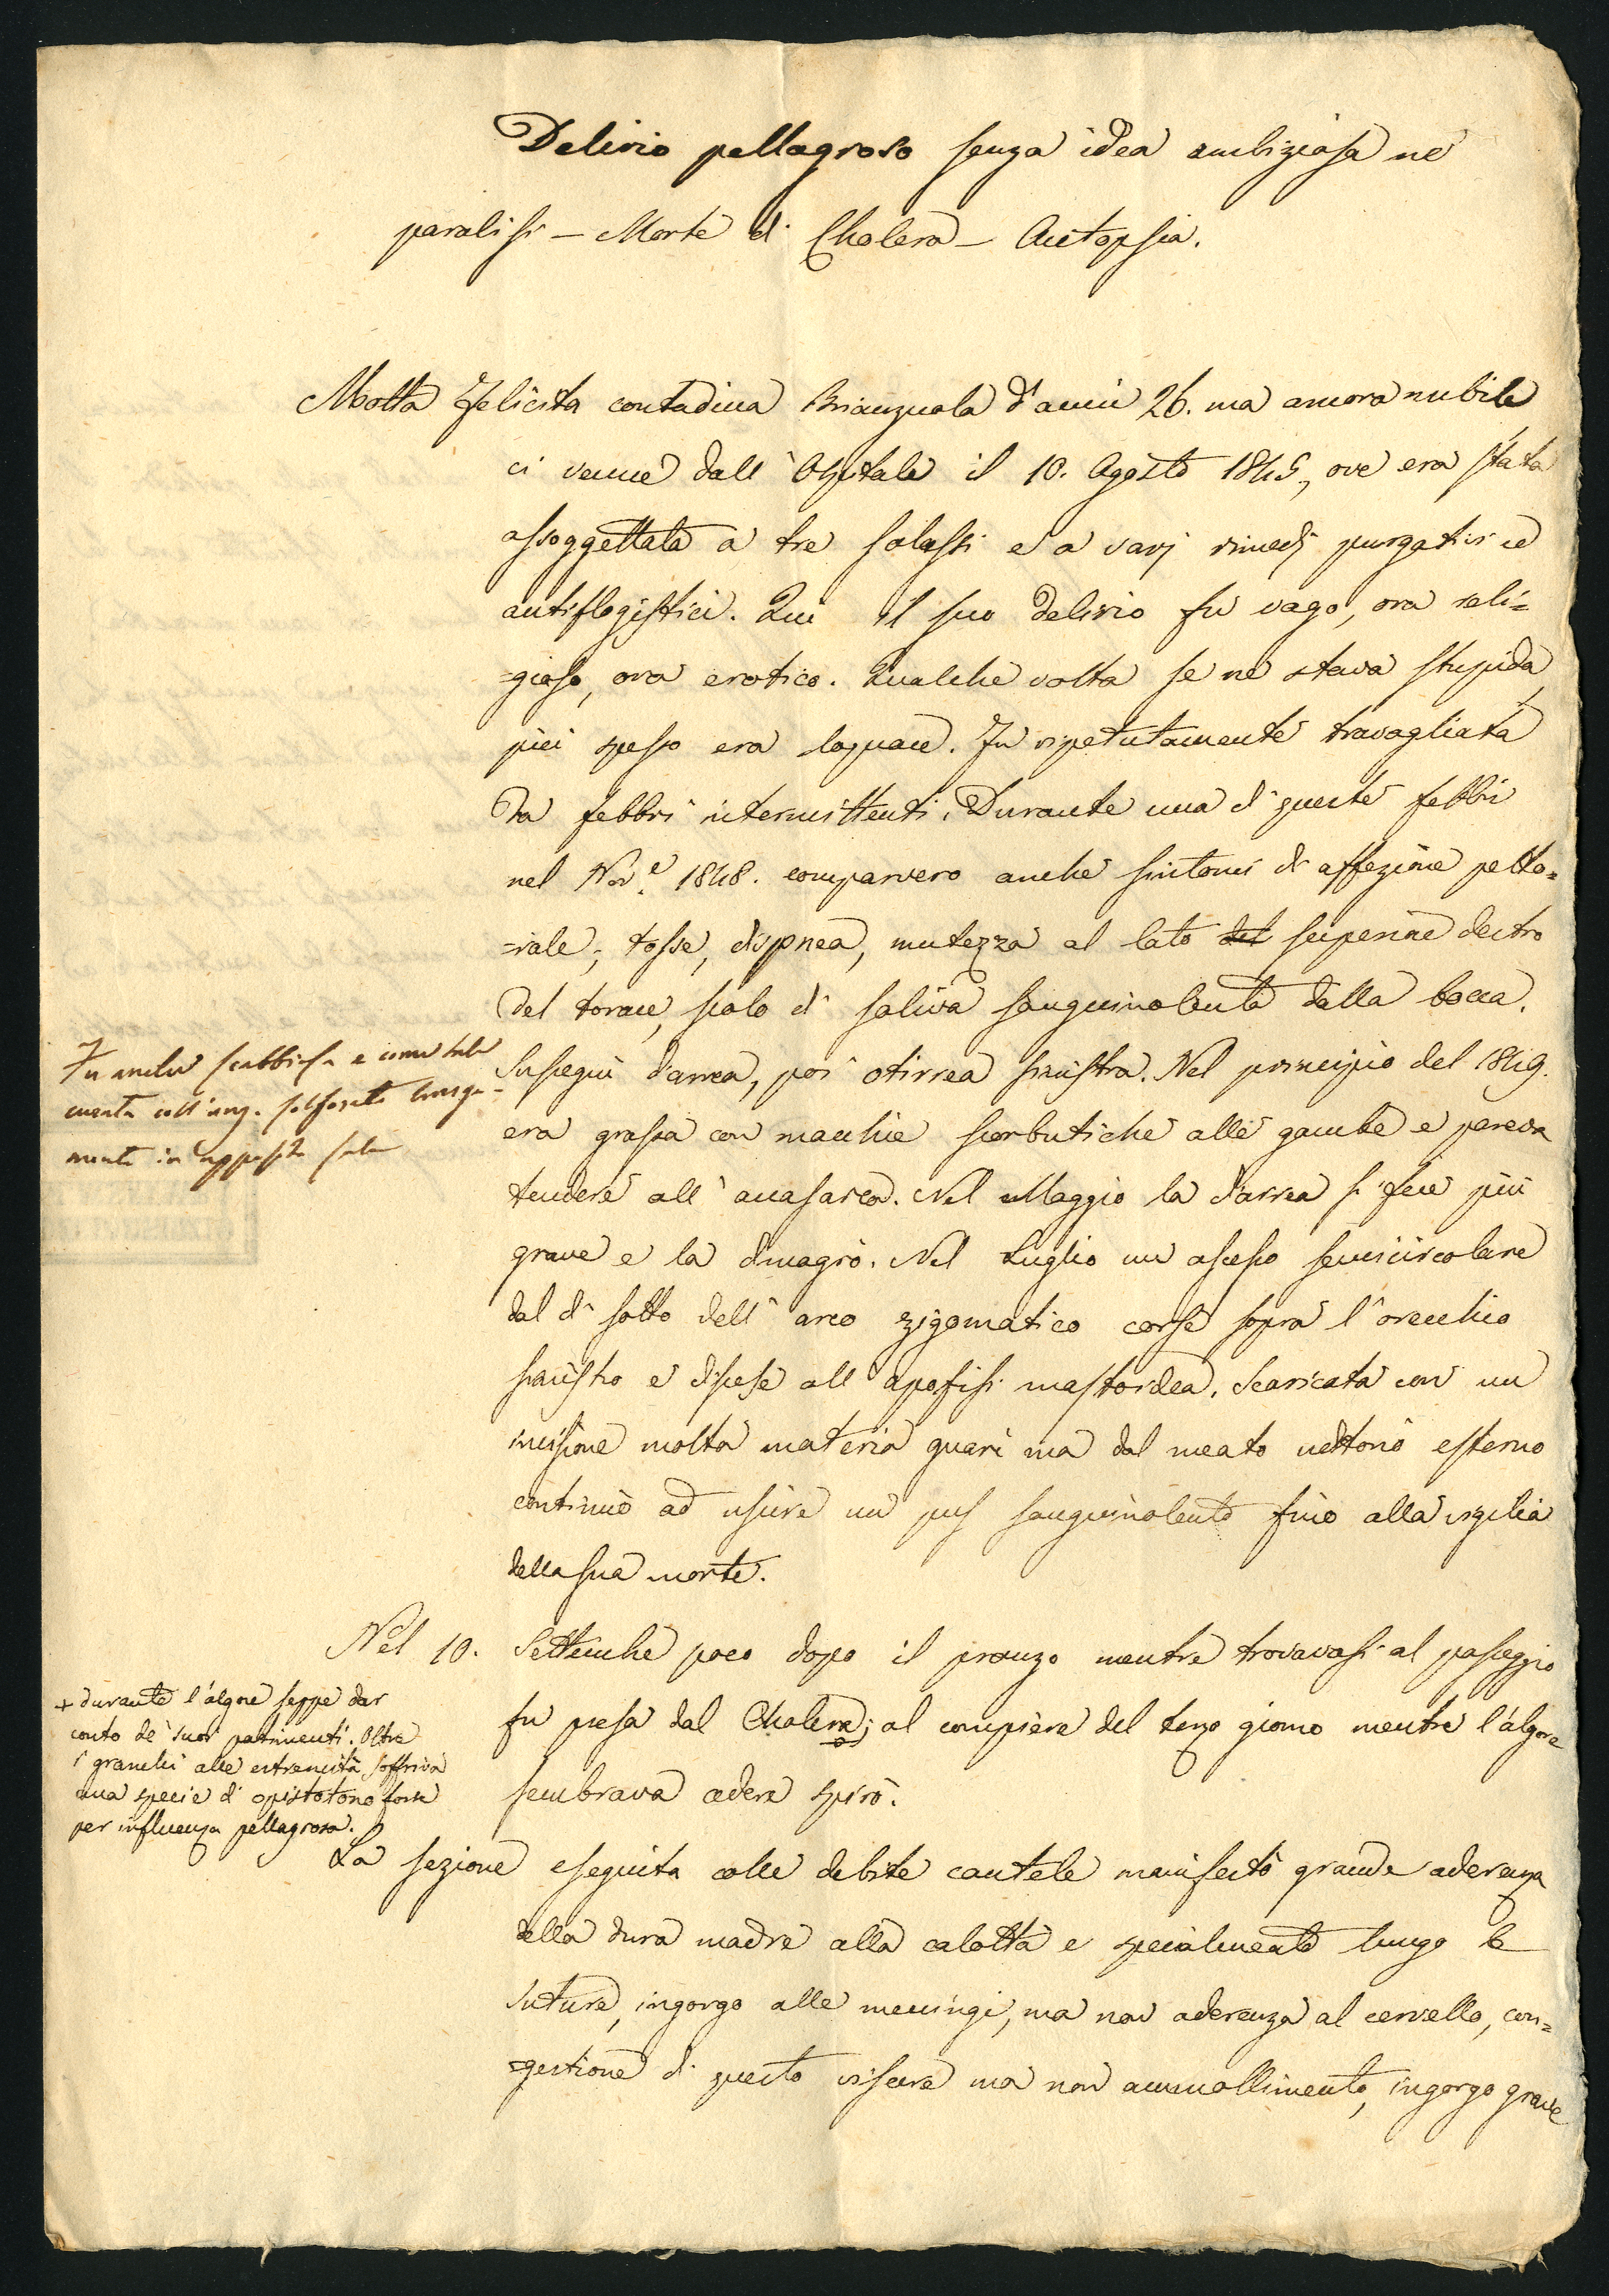 Delirio pellagroso senza idea ambiziosa nè
paralisi – Morte di Cholera – Autopsia.
Motta Felicita contadina Brianzuola d'anni 26. ma ancora nubile
ci venne dall'Ospitale il 10. Agosto 1845, ove era stata
assoggettata a tre salassi e a varj rimedj purgativi ed
antiflogistici. Qui il suo delirio fu vago, ora reli=
=gioso, ora erotico. Qualche volta se ne stava stupida
più spesso era loquace. Fu ripetutamente travagliata
da febbri intermittenti. Durante una di queste febbri
nel Nov.e 1848. comparvero anche sintomi di affezione petto=
=rale; tosse, dispnea, mutezza al lato del superiore destro
del torace, scolo di saliva sanguinolenta dalla bocca.
Susseguì diarrea, poi otirrea sinistra. Nel principio del 1849.
era grassa con macchie scorbutiche alle gambe e pareva
tendere all'anasarca. Nel Maggio la diarrea si fece più
grave e la dimagrò. Nel Luglio un ascesso semicircolare
dal di sotto dell'arco zigomatico corse sopra l'orecchio
sinistro e discese all'apofisi mastoidea. Scaricata con un
incisione molta materia guarì ma dal meato uditorio esterno
continuò ad uscire un pus sanguinolento fino alla vigilia
della sua morte.
Fu anche scabbiosa e come tale
curata coll'ung. solforato lunga-
mente in apposita sala
Nel 10. Settembre poco dopo il pranzo mentre trovavasi al passeggio
fu presa dal Cholera; al compiere del terzo giorno mentre l'algore
sembrava cedere spirò.
+ durante l'algore seppe dar
conto de' suoi patimenti. Oltre
i granchi alle estremità soffriva
una specie di opistotono forse
per influenza pellagrosa.
La sezione eseguita colle debite cautele manifestò grande aderenza
della dura madre alla calotta e specialmente lungo le
suture, ingorgo alle meningi, ma non aderenza al cervello, con=
=gestione di questo viscere ma non ammollimento, ingorgo grave